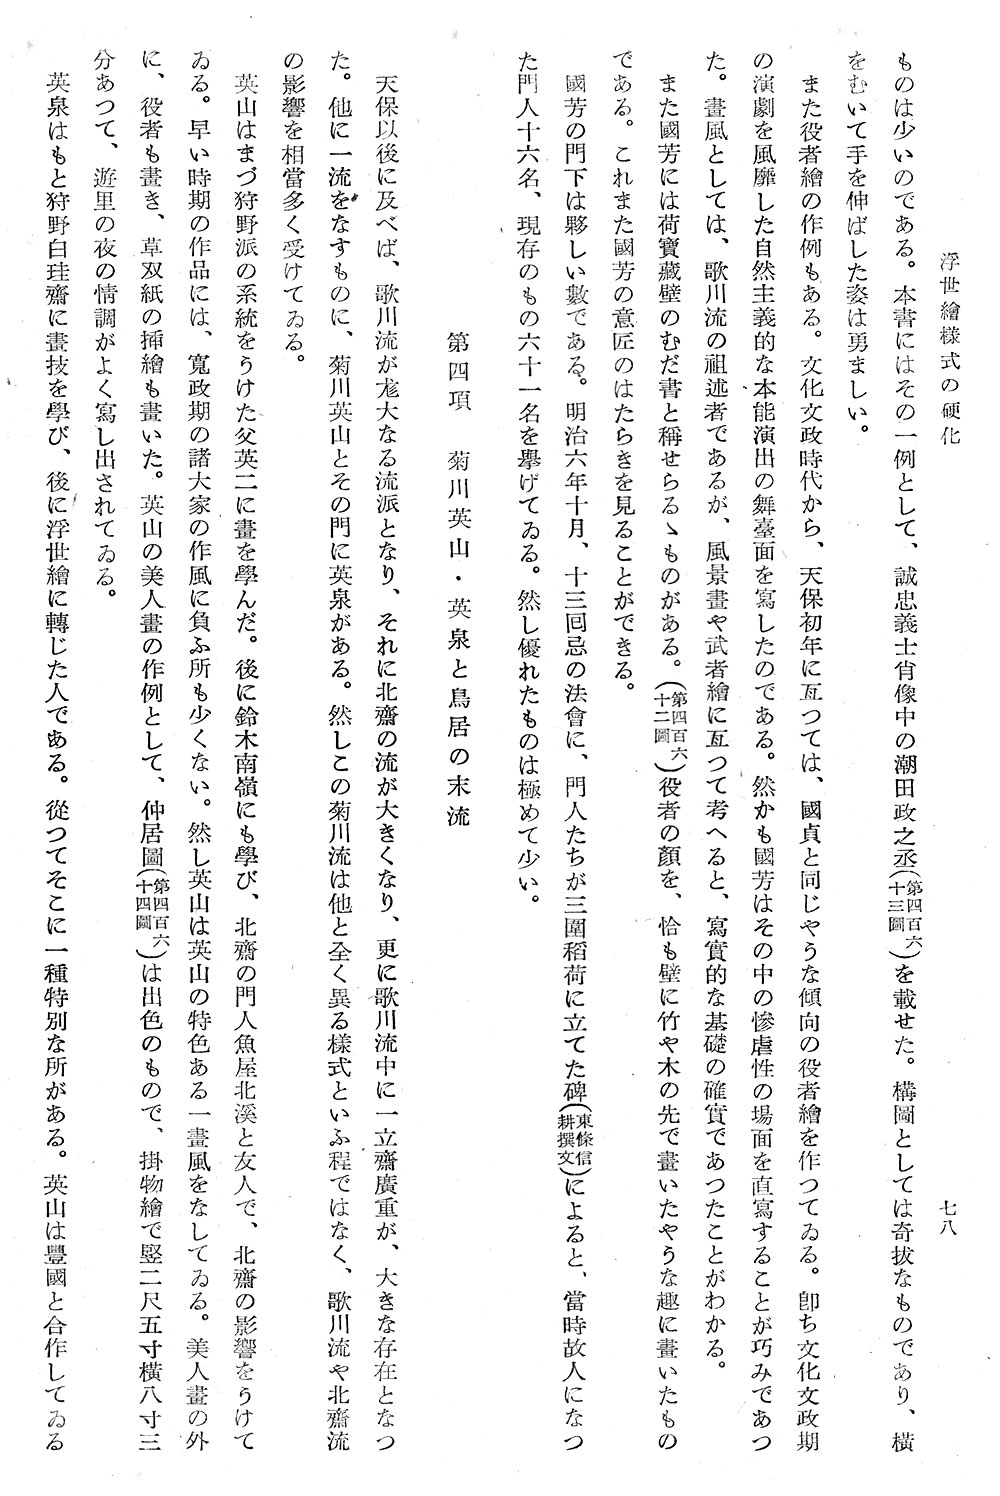 浮世繪樣式の硬化
七八
ものは少いのである。本書にはその一例として、誠忠義士肖像中の潮田政之丞(第四百六十三圖)を載せた。構圖としては奇拔なものであり、橫
をむいて手を伸ばした姿は勇ましい。
また役者繪の作例もある。文化文政時代から、天保初年に亙つては、國貞と同じやうな傾向の役者繪を作つてゐる。卽ち文化文政期
の演劇を風靡した自然主義的な本能演出の舞臺面を寫したのである。然かも國芳はその中の慘虐性の場面を直寫することが巧みであつ
た。畫風としては、歌川流の祖述者であるが、風景畫や武者繪に亙つて考へると、寫實的な基礎の確實であつたことがわかる。
また國芳には荷寶藏壁のむだ書と稱せらるゝものがある。(第四百六十二圖)役者の顏を、恰も壁に竹や木の先で畫いたやうな趣に畫いたもの
である。これまた國芳の意匠のはたらきを見ることができる。
國芳の門下は夥しい數である。明治六年十月、十三回忌の法會に、門人たちが三圍稻荷に立てた碑(東條信耕撰文)によると、當時故人になつ
た門人十六名、現存のもの六十一名を擧げてゐる。然し優れたものは極めて少い。
第四項　菊川英山・英泉と鳥居の末流
天保以後に及べば、歌川流が尨大なる流派となり、それに北齋の流が大きくなり、更に歌川流中に一立齋廣重が、大きな存在となつ
た。他に一流をなすものに、菊川英山とその門に英泉がある。然しこの菊川流は他と全く異る樣式といふ程ではなく、歌川流や北齋流
の影響を相當多く受けてゐる。
英山はまづ狩野派の系統をうけた父英二に畫を學んだ。後に鈴木南嶺にも學び、北齋の門人魚屋北溪と友人で、北齋の影響をうけて
ゐる。早い時期の作品には、寬政期の諸大家の作風に負ふ所も少くない。然し英山は英山の特色ある一畫風をなしてゐる。美人畫の外
に、役者も畫き、草双紙の揷繪も畫いた。英山の美人畫の作例として、仲居圖(第四百六十四圖)は出色のもので、掛物繪で竪二尺五寸橫八寸三
分あつて、遊里の夜の情調がよく寫し出されてゐる。
英泉はもと狩野白珪齋に畫技を學び、後に浮世繪に轉じた人である。從つてそこに一種特別な所がある。英山は豐國と合作してゐる